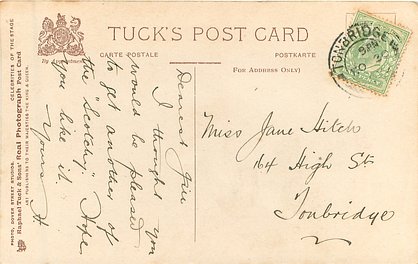 TUCK'S POST CARD
CARTE POSTALE
POSTKARTE
By Appointment
(FOR ADDRESS ONLY)
TONBRIDGE
CELEBRITIES OF THE STAGE
Raphael Tuck & Sons' Real Photograph Post Card
PUBLISHERS TO THEIR MAJESTIES THE KING & QUEEN
PHOTO. DOVER STREET STUDIOS.
Dearest Jan
I thought you
would be pleased
to get another of
the "Scotchy". Hope
you like it.
Yours H
Miss Jane Hitch
164 High St
Tonbridge